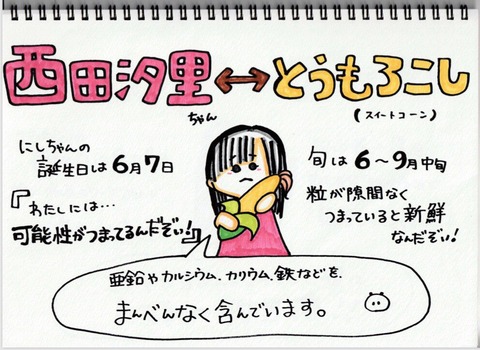 西田汐里↔とうもろこし
ちゃん
(スイートコーン)
にしちゃんの
誕生日は6月7日
『わたしには…
可能性がつまってるんだぞい!』
旬は6〜9月中旬
粒が隙間なく
つまっていると新鮮
なんだぞい!
亜鉛やカルシウム、カリウム、鉄などを、
まんべんなく含んでいます。